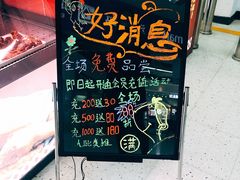 好消息
全场免费品尝
即日起开通会员充值活动
充200送30
充500送80
充1000送180
全场
满